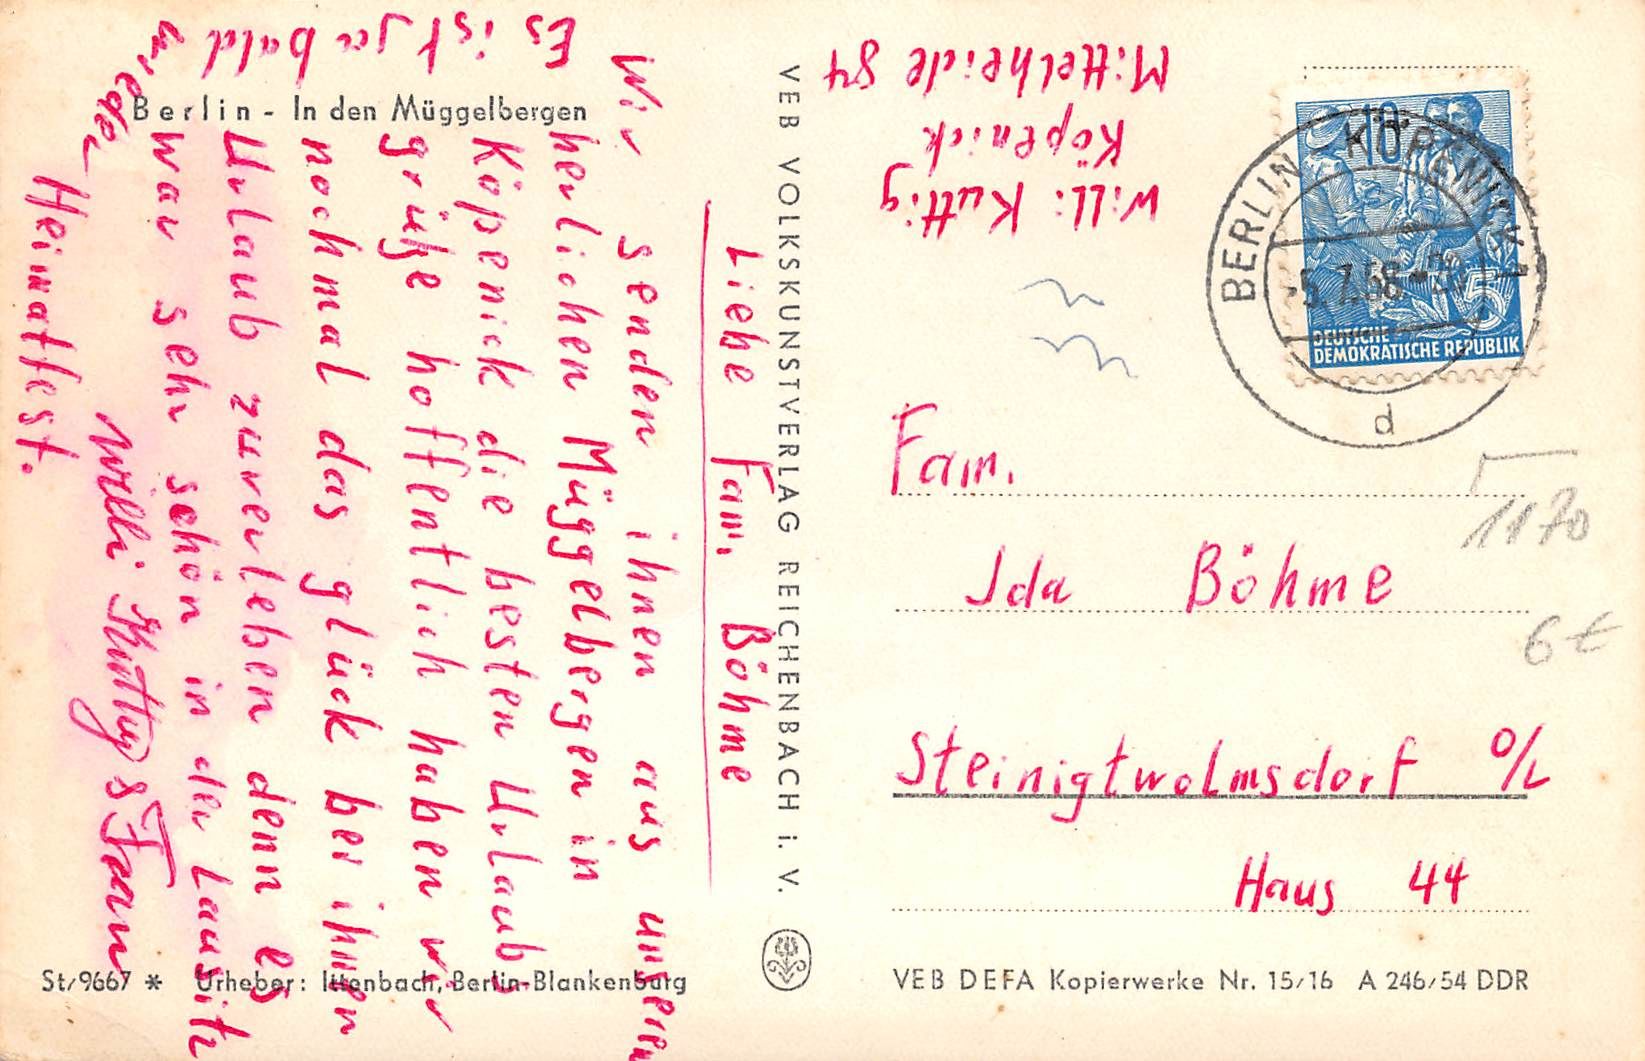 Berlin - In den Müggelbergen
Liebe Fam. Böhme
Wir senden ihnen aus unseren
herlichen Müggelbergen in
Köpenick die besten Urlaubs
grüße hoffentlich haben wir
nochmal das glück bei ihnen
Urlaub zuverleben denn es
war sehr schön in der Lausitz
Willi Kuttig & Fam
Es ist ja bald wieder
Heimatfest.
St/9667 * Urheber: Ittenbach, Berlin-Blankenburg
VEB VOLKSKUNSTVERLAG REICHENBACH i. V.
Willi Kuttig
Köpenick
Mittelheide 84
10
5
DEUTSCHE
DEMOKRATISCHE REPUBLIK
BERLIN - KÖPENICK 1
-5.7.58.-
d
Fam.
Ida Böhme
Steinigtwolmsdorf O/L
Haus 44
1170
6€
VEB DEFA Kopierwerke Nr. 15/16 A 246/54 DDR